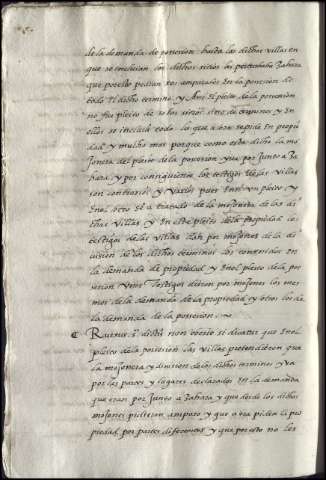 de la demanda de posession: hazia las dichas villas en
que se incluian los dichos sitios les perturbaba Zahara
que por esso pedian ser amparados en la posesion de
todo el dicho termino, y Ansi el pleito de la posession
no fue pleito de solos sitios sino de terminos y en
ellos se incluia todo lo que aora se pide en propie
dad, y mucho mas porque como esta dicho la mo
jonera del pleito de la posession yva por junto a Za
hara, y por consiguiente los testigos de las villas
son contrarios y varios pues en un pleito, y
en el otro se a tratado de la mojonera de las di
chas villas y en este pleito de la propiedad los
testigos de las villas dan por mojones de la di
vision de los dichos terminos los contenidos en
la demanda de propiedad y en el pleito de la po
session unos testigos dieron por mojones los mes
mos de la demanda de la propiedad y otros los de
la demanda de la posession
que dicha non obsta si dicatur que en el
pleito de la posession las villas pretendieron que
la mojonera y division de los dichos terminos yva
por las partes y lugares declarados en la demanda
que eran por junto a Zahara y que desde los dichos
mojones pidieron amparo, y que aora piden la pro
piedad por partes diferentes y que por esto no les